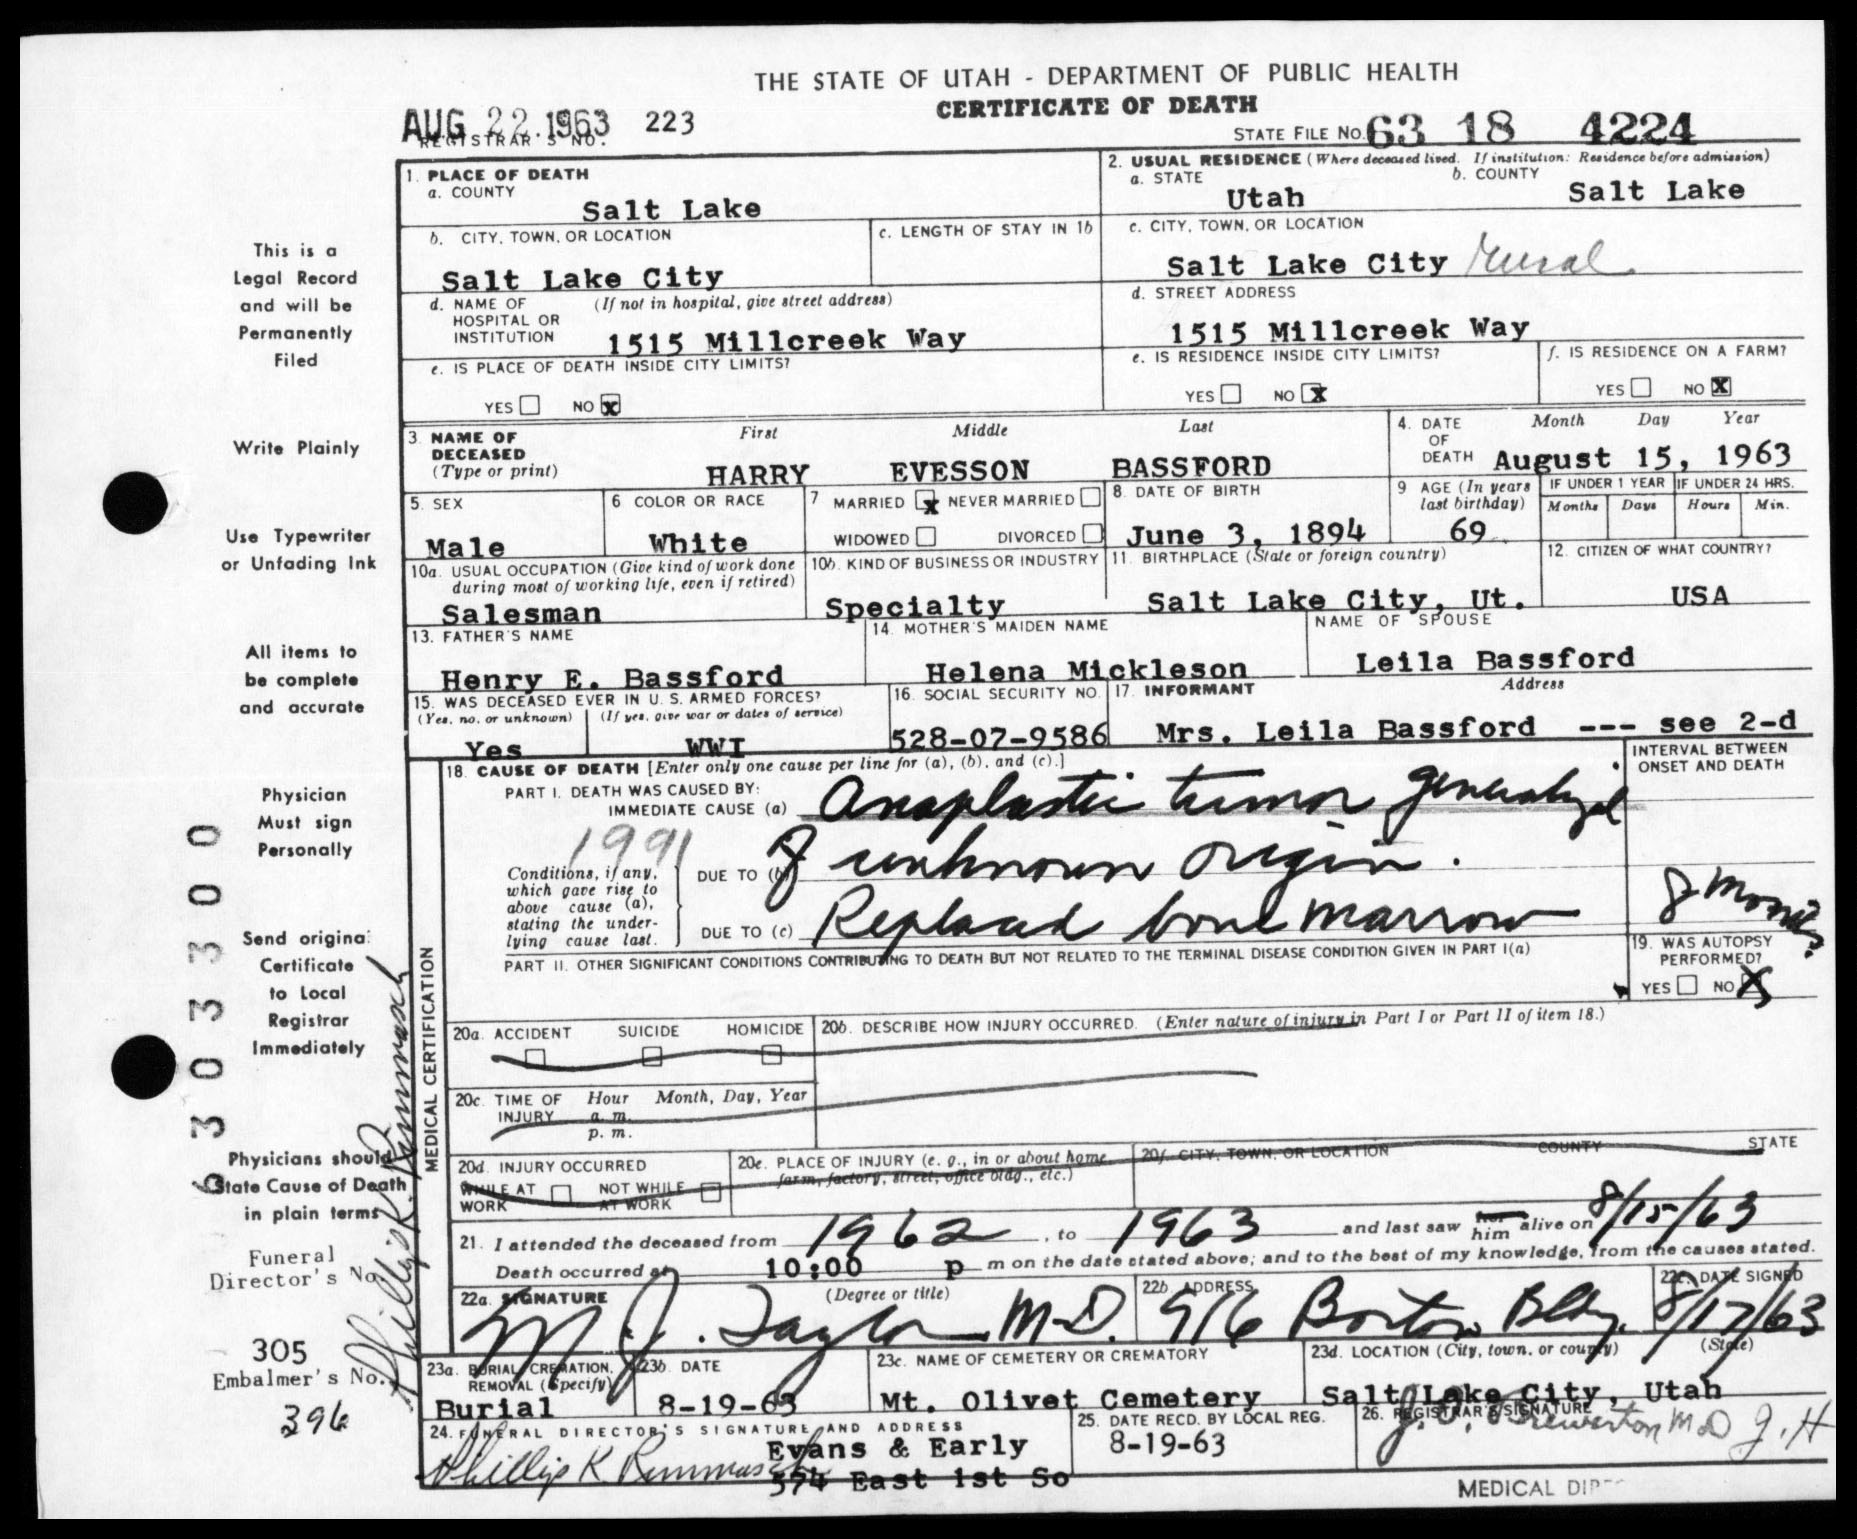 THE STATE OF UTAH - DEPARTMENT OF PUBLIC HEALTH
CERTIFICATE OF DEATH
AUG 22 1963 223
REGISTRAR'S NO.
STATE FILE NO. 63 18 4224
1. PLACE OF DEATH
a. COUNTY
Salt Lake
2. USUAL RESIDENCE (Where deceased lived. If institution: Residence before admission)
a. STATE
Utah
b. COUNTY
Salt Lake
b. CITY, TOWN, OR LOCATION
Salt Lake City
c. LENGTH OF STAY IN 1b
c. CITY, TOWN, OR LOCATION
Salt Lake City Rural
d. NAME OF (If not in hospital, give street address)
HOSPITAL OR
INSTITUTION
1515 Millcreek Way
d. STREET ADDRESS
1515 Millcreek Way
e. IS PLACE OF DEATH INSIDE CITY LIMITS?
YES NO X
e. IS RESIDENCE INSIDE CITY LIMITS?
YES NO X
f. IS RESIDENCE ON A FARM?
YES NO X
3. NAME OF
DECEASED
(Type or print)
First Middle Last
HARRY EVESSON BASSFORD
4. DATE
OF
DEATH
Month Day Year
August 15, 1963
5. SEX
Male
6 COLOR OR RACE
White
7 MARRIED X NEVER MARRIED
WIDOWED DIVORCED
8. DATE OF BIRTH
June 3, 1894
9 AGE (In years
last birthday)
69
IF UNDER 1 YEAR
Months Days
IF UNDER 24 HRS.
Hours Min.
10a. USUAL OCCUPATION (Give kind of work done
during most of working life, even if retired)
Salesman
10b. KIND OF BUSINESS OR INDUSTRY
Specialty
11. BIRTHPLACE (State or foreign country)
Salt Lake City, Ut.
12. CITIZEN OF WHAT COUNTRY?
USA
13. FATHER'S NAME
Henry E. Bassford
14. MOTHER'S MAIDEN NAME
Helena Mickleson
NAME OF SPOUSE
Leila Bassford
15. WAS DECEASED EVER IN U. S. ARMED FORCES?
(Yes, no, or unknown) (If yes, give war or dates of service)
Yes WWI
16. SOCIAL SECURITY NO.
528-07-9586
17. INFORMANT Address
Mrs. Leila Bassford --- see 2-d
18. CAUSE OF DEATH [Enter only one cause per line for (a), (b), and (c).]
INTERVAL BETWEEN
ONSET AND DEATH
PART I. DEATH WAS CAUSED BY:
IMMEDIATE CAUSE (a) Anaplastic tumor generalized
1991
Conditions, if any,
which gave rise to
above cause (a),
stating the under-
lying cause last.
DUE TO (b) of unknown origin.
DUE TO (c) Replaced bone marrow
8 months
PART II. OTHER SIGNIFICANT CONDITIONS CONTRIBUTING TO DEATH BUT NOT RELATED TO THE TERMINAL DISEASE CONDITION GIVEN IN PART I(a)
19. WAS AUTOPSY
PERFORMED?
YES NO X
MEDICAL CERTIFICATION
20a. ACCIDENT SUICIDE HOMICIDE
20b. DESCRIBE HOW INJURY OCCURRED. (Enter nature of injury in Part I or Part II of item 18.)
20c. TIME OF Hour Month, Day, Year
INJURY a. m.
p. m.
20d. INJURY OCCURRED
WHILE AT NOT WHILE
WORK AT WORK
20e. PLACE OF INJURY (e. g., in or about home,
farm, factory, street, office bldg., etc.)
20f. CITY, TOWN, OR LOCATION COUNTY STATE
21. I attended the deceased from 1962, to 1963 and last saw her him alive on 8/15/63
Death occurred at 10:00 p m on the date stated above; and to the best of my knowledge, from the causes stated.
22a. SIGNATURE (Degree or title)
M. J. Taylor M.D.
22b. ADDRESS
916 Boston Bldg.
22c. DATE SIGNED
8/17/63
23a. BURIAL, CREMATION,
REMOVAL (Specify)
Burial
23b. DATE
8-19-63
23c. NAME OF CEMETERY OR CREMATORY
Mt. Olivet Cemetery
23d. LOCATION (City, town, or county) (State)
Salt Lake City, Utah
24. FUNERAL DIRECTOR'S SIGNATURE AND ADDRESS
Evans & Early
574 East 1st So
25. DATE RECD. BY LOCAL REG.
8-19-63
26. REGISTRAR'S SIGNATURE
MEDICAL
This is a
Legal Record
and will be
Permanently
Filed
Write Plainly
Use Typewriter
or Unfading Ink
All items to
be complete
and accurate
Physician
Must sign
Personally
Send original
Certificate
to Local
Registrar
Immediately
Physicians should
State Cause of Death
in plain terms
Funeral
Director's No.
305
Embalmer's No.
396